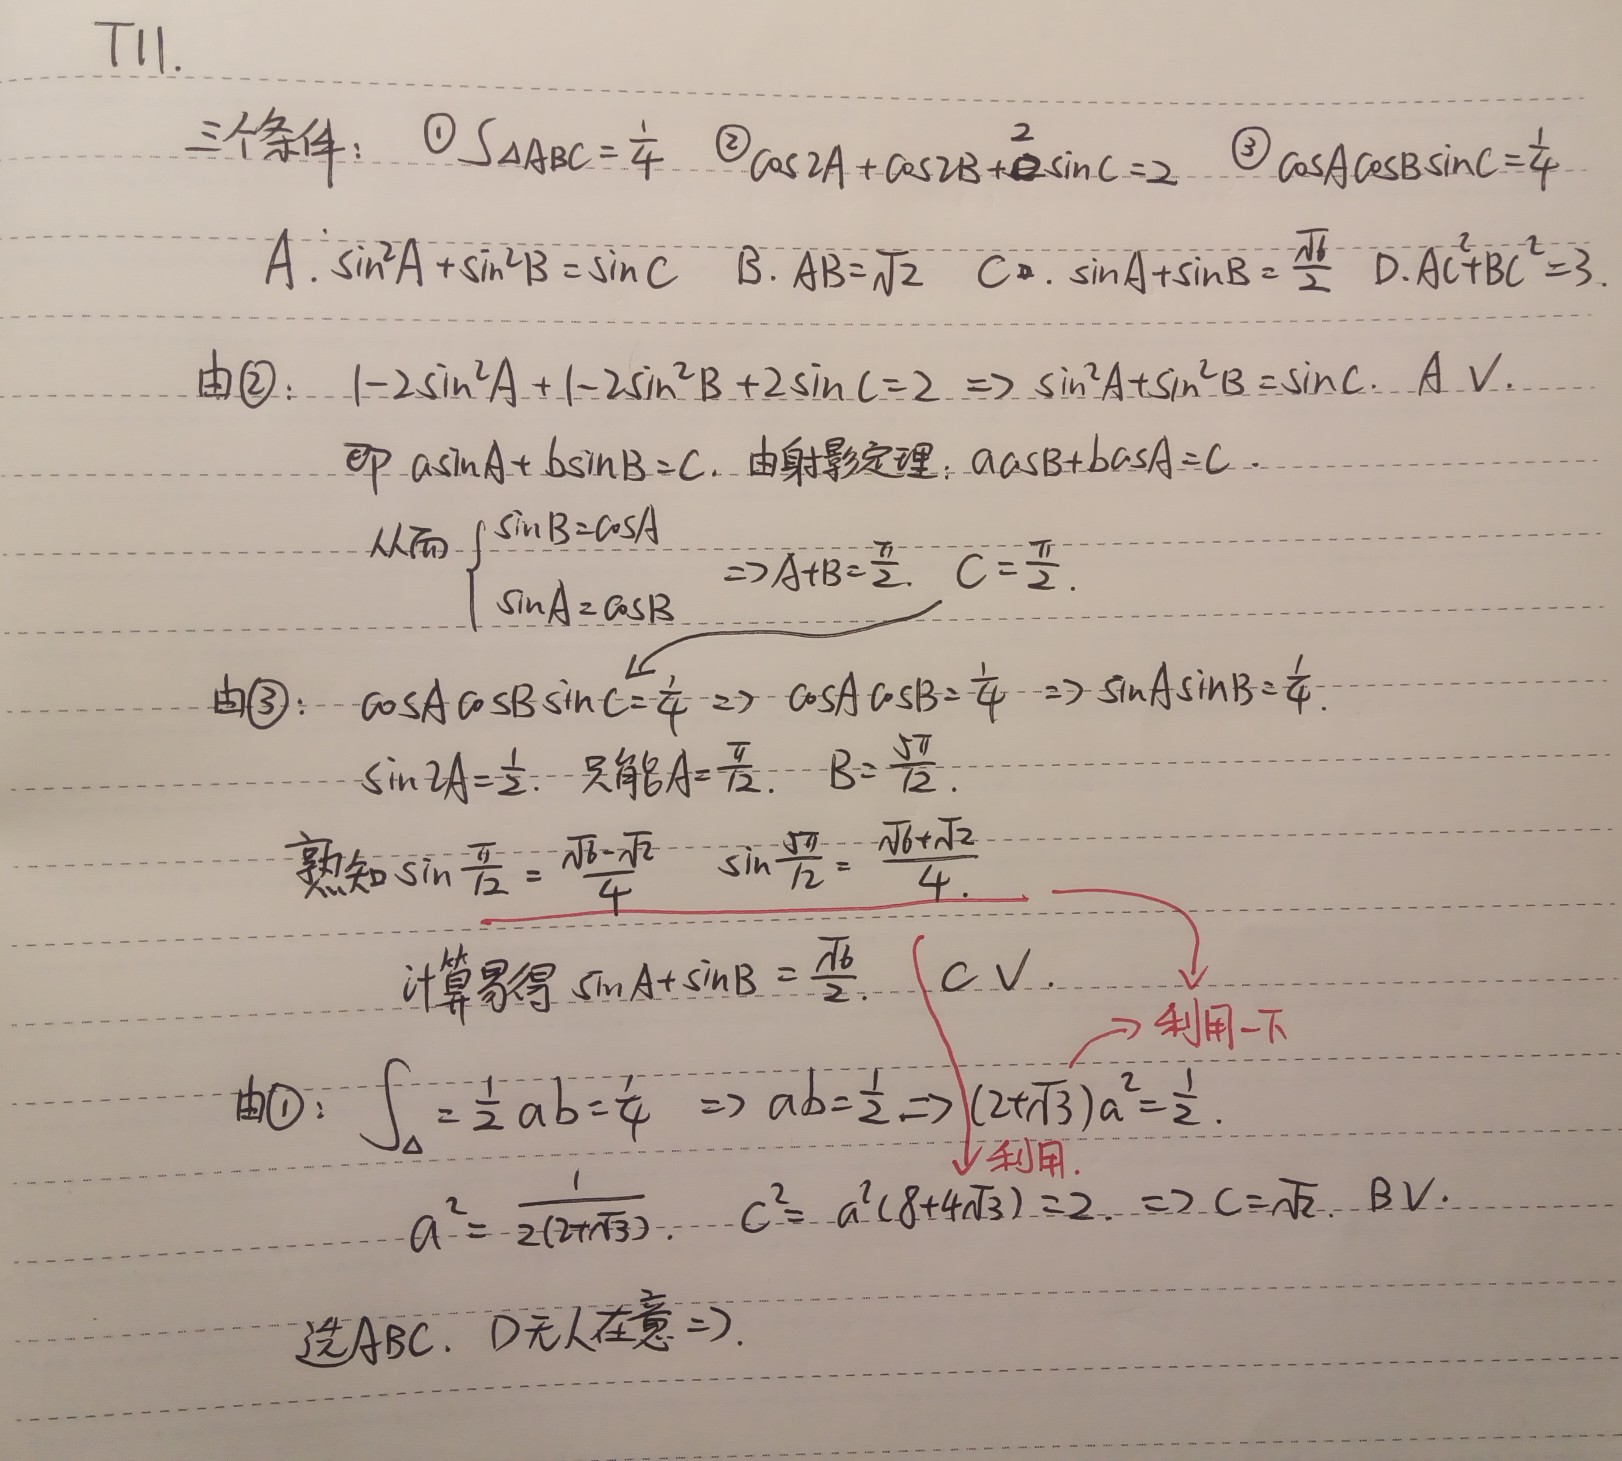 T11.
三个条件: ① S△ABC = 1/4 ② cos2A + cos2B + 2sinC = 2 ③ cosAcosBsinC = 1/4
A. sin²A + sin²B = sinC B. AB = √2 C. sinA + sinB = √6/2 D. AC² + BC² = 3.
由②: 1-2sin²A + 1-2sin²B + 2sinC = 2 => sin²A + sin²B = sinC. A √.
即 asinA + bsinB = C. 由射影定理: acosB + bcosA = C.
从而 { sinB = cosA
sinA = cosB => A+B = π/2. C = π/2.
由③: cosAcosBsinC = 1/4 => cosAcosB = 1/4 => sinAsinB = 1/4.
sin2A = 1/2. 只能A = π/12. B = 5π/12.
熟知 sin π/12 = (√6-√2)/4 sin 5π/12 = (√6+√2)/4.
计算易得 sinA + sinB = √6/2. C √.
利用一下
由①: S△ = 1/2 ab = 1/4 => ab = 1/2 => (2+√3)a² = 1/2.
利用.
a² = 1/(2(2+√3)). c² = a²(8+4√3) = 2. => c = √2. B √.
选ABC. D无人在意 =).